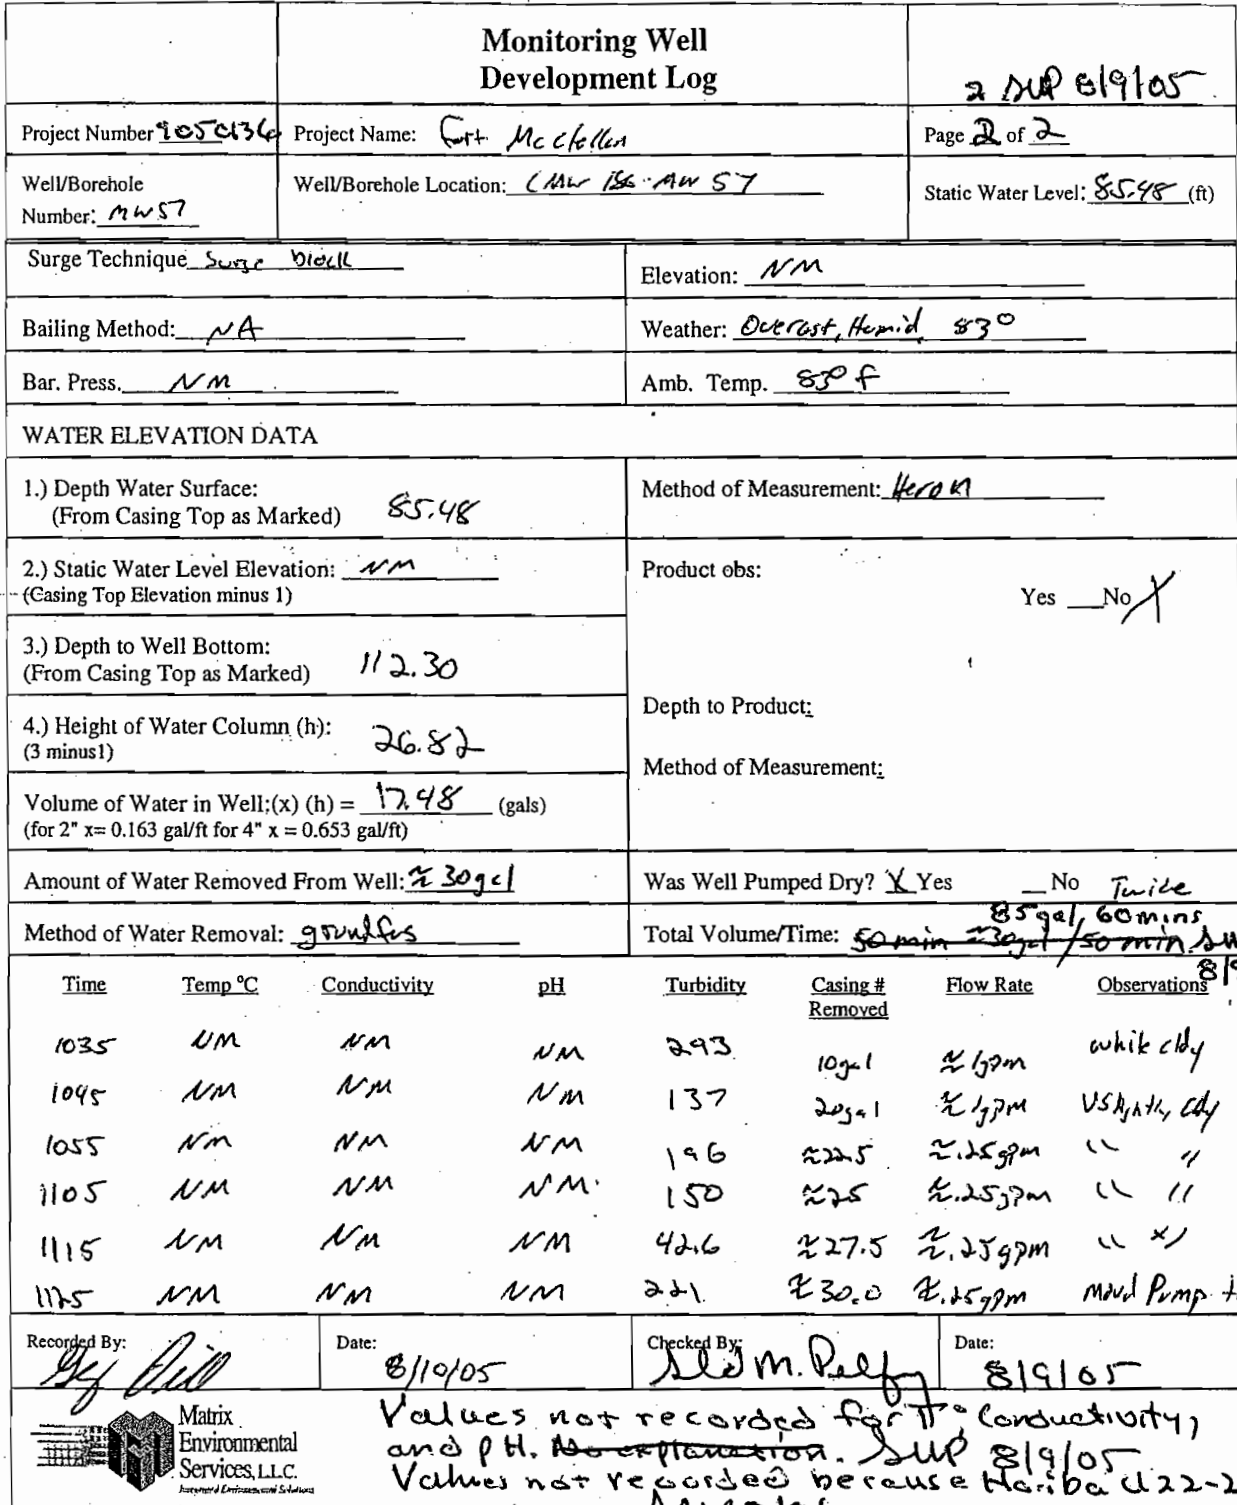 Monitoring Well
Development Log
2 SMP 8/9/05
Project Number
Project Name: Fort McClellan
Page 2 of 2
Well/Borehole
Number: MW57
Well/Borehole Location: MW57
Static Water Level: 85.48 (ft)
Surge Technique Surge block
Elevation: NM
Bailing Method: NA
Weather: Overcast, Humid, 83°
Bar. Press. NM
Amb. Temp. 83° F
WATER ELEVATION DATA
1.) Depth Water Surface:
(From Casing Top as Marked) 85.48
Method of Measurement: Heron
2.) Static Water Level Elevation: NM
(Casing Top Elevation minus 1)
Product obs:
Yes __No X
3.) Depth to Well Bottom:
(From Casing Top as Marked) 112.30
Depth to Product:
4.) Height of Water Column (h):
(3 minus1) 26.82
Method of Measurement:
Volume of Water in Well:(x) (h) = 17.48 (gals)
(for 2" x= 0.163 gal/ft for 4" x = 0.653 gal/ft)
Amount of Water Removed From Well: ≈ 30gal
Was Well Pumped Dry? X Yes __ No Twice
Method of Water Removal: grundfos
85gal, 60mins
Total Volume/Time: 50 min ≈30gal/50 min
8/9
Time Temp °C Conductivity pH Turbidity Casing # Removed Flow Rate Observations
1035 NM NM NM 293 10gal ≈ 1gpm white cldy
1045 NM NM NM 137 20gal ≈ 1gpm VSlightly cldy
1055 NM NM NM 196 ≈22.5 ≈.25gpm " "
1105 NM NM NM 150 ≈25 ≈.25gpm " "
1115 NM NM NM 42.6 ≈27.5 ≈.25gpm " "
1125 NM NM NM 221 ≈30.0 ≈.25gpm Movd Pump
Recorded By:
Date: 8/10/05
Checked By:
Date: 8/9/05
Matrix
Environmental
Services, L.L.C.
Integrated Environmental Solutions
Values not recorded for T°, Conductivity,
and pH. No explanation. SMP 8/9/05
Values not recorded because Horiba U22-2